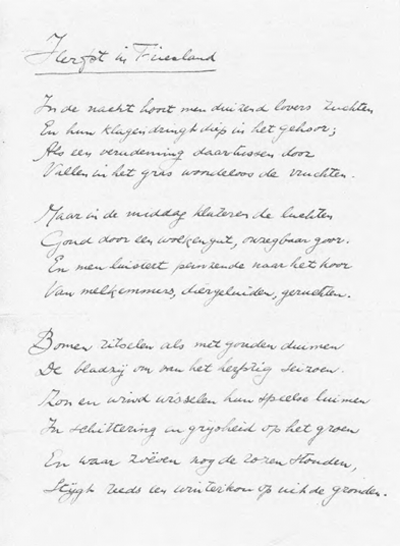 Herfst in Friesland
In de nacht hoort men duizend lovers zuchten
En hun klagen dringt diep in het gehoor;
Als een verademing daartussen door
Vallen in het gras woordeloos de vruchten.
Maar in de middag klateren de luchten
Goud door een wolkengut, onzegbaar goor.
En men luistert peinzende naar het koor
Van melkemmers, diergeluiden, geruchten.
Bomen ritselen als met gouden duimen
De bladzij om van het herfstig seizoen.
Zon en wind wisselen hun speelse luimen
In schittering en grijsheid op het groen
En waar zoëven nog de rozen stonden,
Stijgt reeds een winterkou op uit de gronden.